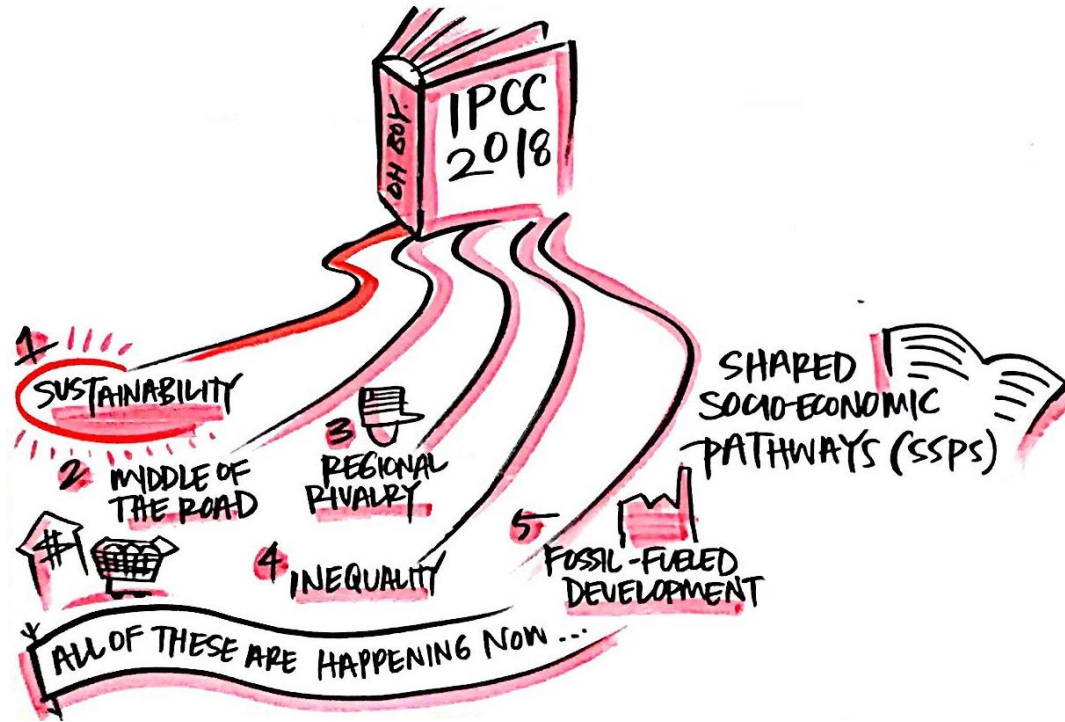 OH BOY.
IPCC
2018
1
SUSTAINABILITY
2 MIDDLE OF
THE ROAD
3
REGIONAL
RIVALRY
4 INEQUALITY
5
FOSSIL-FUELED
DEVELOPMENT
SHARED
SOCIO-ECONOMIC
PATHWAYS (SSPS)
#
ALL OF THESE ARE HAPPENING NOW...